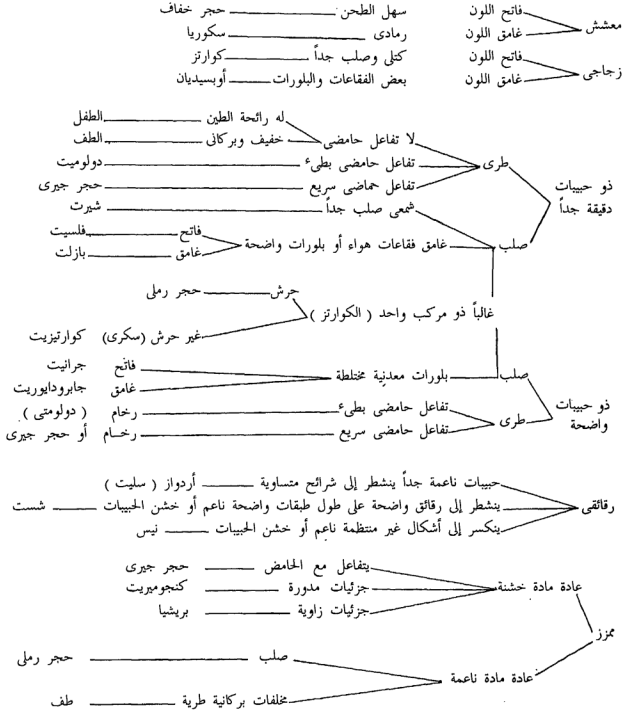 معشش فاتح اللون سهل الطحن حجر خفاف
غامق اللون رمادى سكوريا
زجاجى فاتح اللون كتلى وصلب جداً كوارتز
غامق اللون بعض الفقاعات والبلورات أوبسيديان
ذو حبيبات دقيقة جداً
طرى
لا تفاعل حامضى
له رائحة الطين الطفل
خفيف وبركانى الطف
تفاعل حامضى بطىء دولوميت
تفاعل حماضى سريع حجر جيرى
صلب
شمعى صلب جداً شيرت
غامق فقاعات هواء أو بلورات واضحة
فاتح فلسيت
غامق بازلت
غالباً ذو مركب واحد ( الكوارتز )
حرش حجر رملى
غير حرش (سكرى) كوارتيزيت
ذو حبيبات واضحة
صلب
بلورات معدنية مختلطة
فاتح جرانيت
غامق جابرودايوريت
طرى
تفاعل حامضى بطىء رخام ( دولومتى )
تفاعل حامضى سريع رخـام أو حجر جيرى
رقائقى
حبيبات ناعمة جداً ينشطر إلى شرائح متساوية أردواز ( سليت )
ينشطر إلى رقائق واضحة على طول طبقات واضحة ناعم أو خشن الحبيبات شست
ينكسر إلى أشكال غير منتظمة ناعم أو خشن الحبيبات نيس
ممزز
عادة مادة خشنة
يتفاعل مع الحامض حجر جيرى
جزئيات مدورة كنجوميريت
جزئيات زاوية بريشيا
عادة مادة ناعمة
صلب حجر رملى
مخلفات بركانية طرية طف